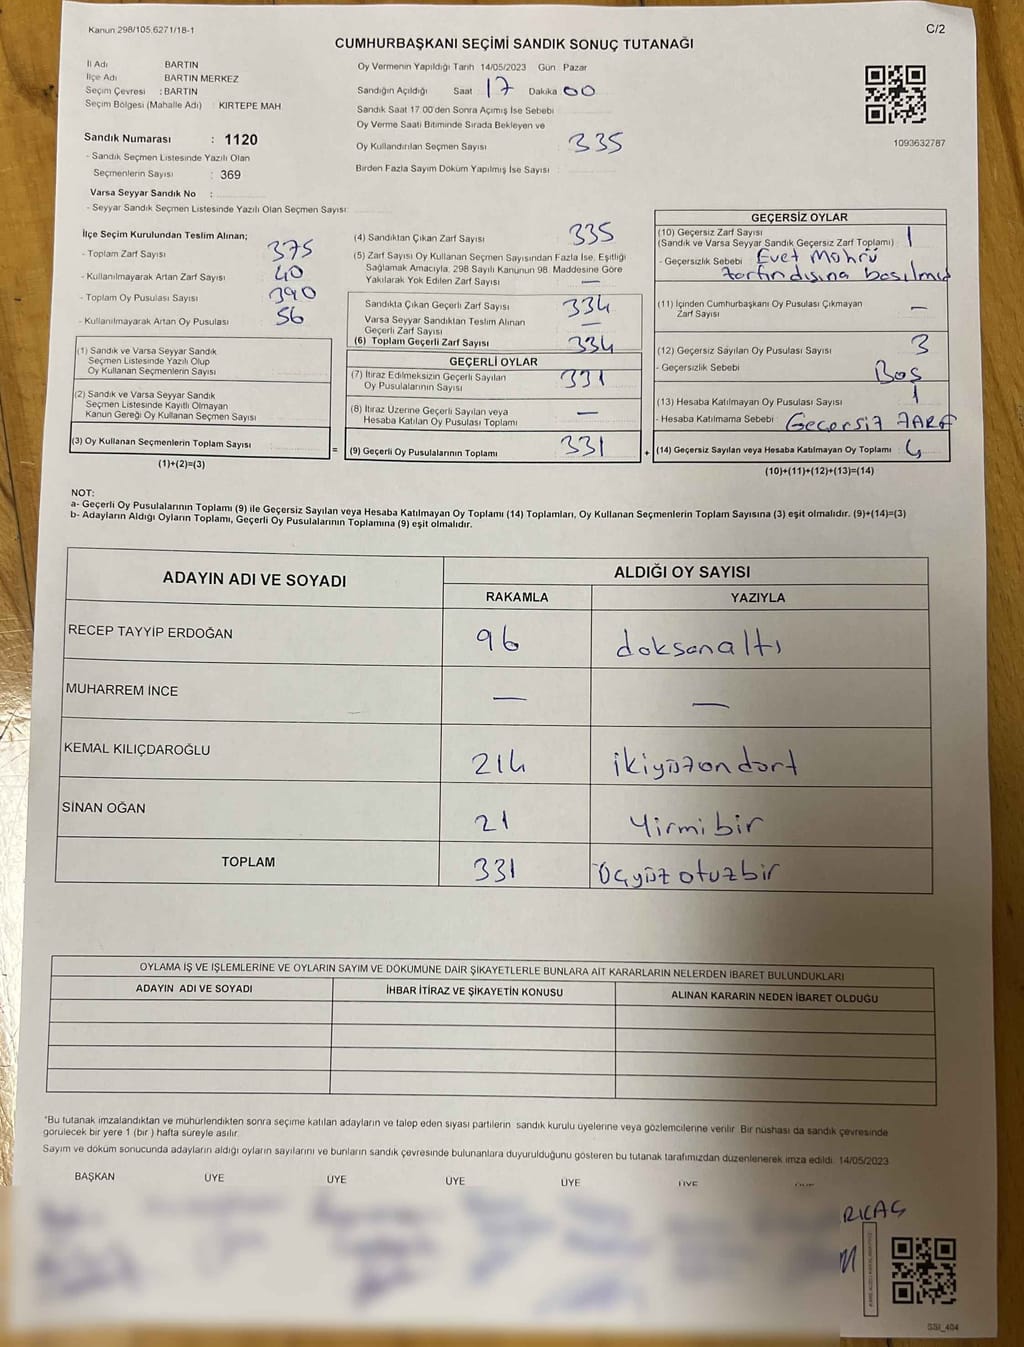 Kanun 298/105,6271/18-1
C/2
CUMHURBAŞKANI SEÇİMİ SANDIK SONUÇ TUTANAĞI
İl Adı BARTIN
İlçe Adı BARTIN MERKEZ
Seçim Çevresi : BARTIN
Seçim Bölgesi (Mahalle Adı) : KIRTEPE MAH
Sandık Numarası : 1120
- Sandık Seçmen Listesinde Yazılı Olan
Seçmenlerin Sayısı : 369
Varsa Seyyar Sandık No :
- Seyyar Sandık Seçmen Listesinde Yazılı Olan Seçmen Sayısı:
Oy Vermenin Yapıldığı Tarih 14/05/2023 Gün Pazar
Sandığın Açıldığı Saat 17 Dakika 00
Sandık Saat 17.00'den Sonra Açılmış İse Sebebi
Oy Verme Saati Bitiminde Sırada Bekleyen ve
Oy Kullandırılan Seçmen Sayısı 335
Birden Fazla Sayım Döküm Yapılmış İse Sayısı
1093632787
İlçe Seçim Kurulundan Teslim Alınan;
- Toplam Zarf Sayısı 375
- Kullanılmayarak Artan Zarf Sayısı 40
- Toplam Oy Pusulası Sayısı 390
- Kullanılmayarak Artan Oy Pusulası 56
(1) Sandık ve Varsa Seyyar Sandık
Seçmen Listesinde Yazılı Olup
Oy Kullanan Seçmenlerin Sayısı
(2) Sandık ve Varsa Seyyar Sandık
Seçmen Listesinde Kayıtlı Olmayan
Kanun Gereği Oy Kullanan Seçmen Sayısı
(3) Oy Kullanan Seçmenlerin Toplam Sayısı
(1)+(2)=(3)
(4) Sandıktan Çıkan Zarf Sayısı 335
(5) Zarf Sayısı Oy Kullanan Seçmen Sayısından Fazla İse, Eşitliği
Sağlamak Amacıyla, 298 Sayılı Kanunun 98. Maddesine Göre
Yakılarak Yok Edilen Zarf Sayısı —
Sandıkta Çıkan Geçerli Zarf Sayısı 334
Varsa Seyyar Sandıktan Teslim Alınan
Geçerli Zarf Sayısı —
(6) Toplam Geçerli Zarf Sayısı 334
GEÇERLİ OYLAR
(7) İtiraz Edilmeksizin Geçerli Sayılan
Oy Pusulalarının Sayısı 331
(8) İtiraz Üzerine Geçerli Sayılan veya
Hesaba Katılan Oy Pusulası Toplamı —
= (9) Geçerli Oy Pusulalarının Toplamı 331
GEÇERSİZ OYLAR
(10) Geçersiz Zarf Sayısı
(Sandık ve Varsa Seyyar Sandık Geçersiz Zarf Toplamı) 1
- Geçersizlik Sebebi Evet Mohrü
zarfın dışına basılmış
(11) İçinden Cumhurbaşkanı Oy Pusulası Çıkmayan
Zarf Sayısı —
(12) Geçersiz Sayılan Oy Pusulası Sayısı 3
- Geçersizlik Sebebi Boş
(13) Hesaba Katılmayan Oy Pusulası Sayısı 1
- Hesaba Katılmama Sebebi Geçersiz ZARF
+ (14) Geçersiz Sayılan veya Hesaba Katılmayan Oy Toplamı 4
(10)+(11)+(12)+(13)=(14)
NOT:
a- Geçerli Oy Pusulalarının Toplamı (9) ile Geçersiz Sayılan veya Hesaba Katılmayan Oy Toplamı (14) Toplamları, Oy Kullanan Seçmenlerin Toplam Sayısına (3) eşit olmalıdır. (9)+(14)=(3)
b- Adayların Aldığı Oyların Toplamı, Geçerli Oy Pusulalarının Toplamına (9) eşit olmalıdır.
ADAYIN ADI VE SOYADI ALDIĞI OY SAYISI
RAKAMLA YAZIYLA
RECEP TAYYİP ERDOĞAN 96 doksanaltı
MUHARREM İNCE — —
KEMAL KILIÇDAROĞLU 214 ikiyüzondört
SİNAN OĞAN 21 Yirmibir
TOPLAM 331 Üçyüzotuzbir
OYLAMA İŞ VE İŞLEMLERİNE VE OYLARIN SAYIM VE DÖKÜMÜNE DAİR ŞİKAYETLERLE BUNLARA AİT KARARLARIN NELERDEN İBARET BULUNDUKLARI
ADAYIN ADI VE SOYADI İHBAR İTİRAZ VE ŞİKAYETİN KONUSU ALINAN KARARIN NEDEN İBARET OLDUĞU
*Bu tutanak imzalandıktan ve mühürlendikten sonra seçime katılan adayların ve talep eden siyasi partilerin sandık kurulu üyelerine veya gözlemcilerine verilir. Bir nüshası da sandık çevresinde
görülecek bir yere 1 (bir) hafta süreyle asılır.
Sayım ve döküm sonucunda adayların aldığı oyların sayılarını ve bunların sandık çevresinde bulunanlara duyurulduğunu gösteren bu tutanak tarafımızdan düzenlenerek imza edildi. 14/05/2023
BAŞKAN ÜYE ÜYE ÜYE ÜYE ÜYE
SSI_404